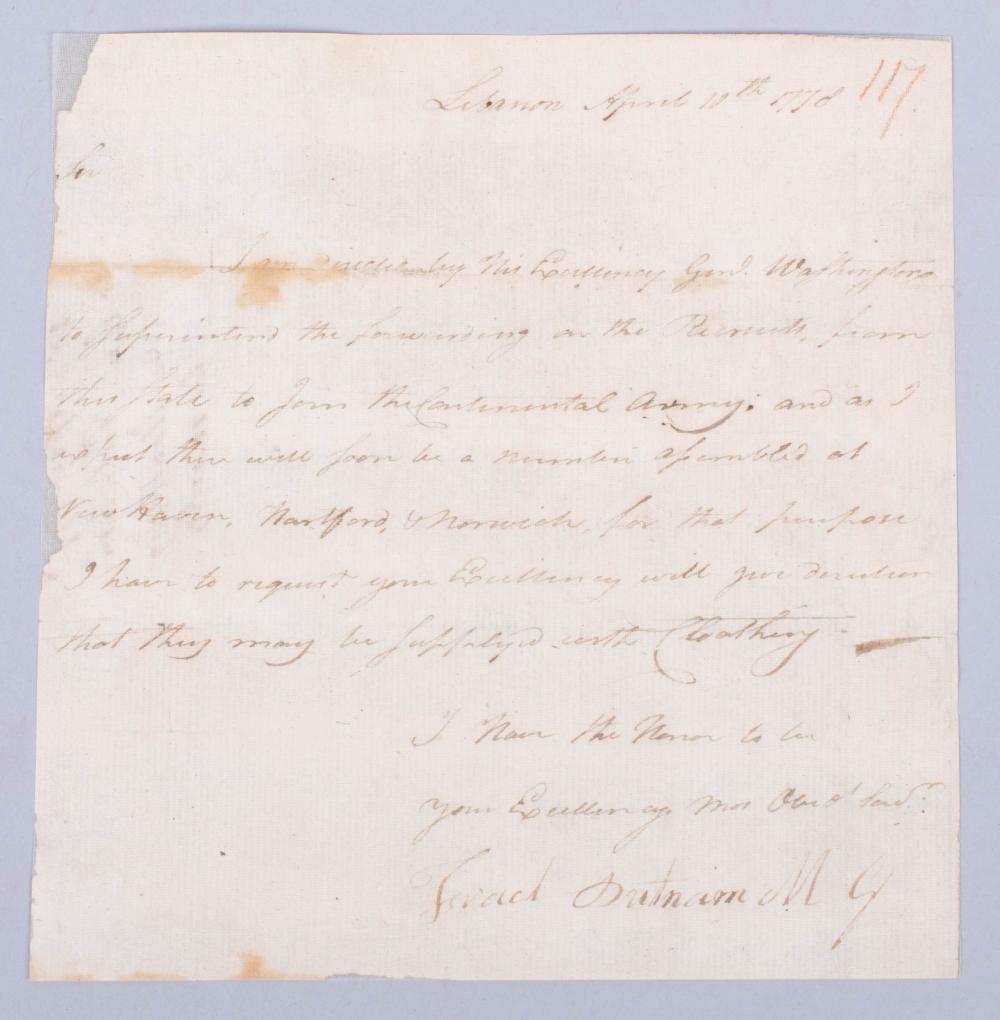 Lebanon April 10th 1778 117
Sir
I am by His Excellency Genl. Washington
to Superintend the forwarding on the Recruits, from
this State to Join the Continental Army; and as I
expect there will soon be a number assembled at
New Haven, Hartford, & Norwich, for that purpose
I have to request your Excellency will give direction
that they may be supplyed with Cloathing
I Have the Honor to be
your Excellencys Mos Obedt Servt
Israel Putnam M G